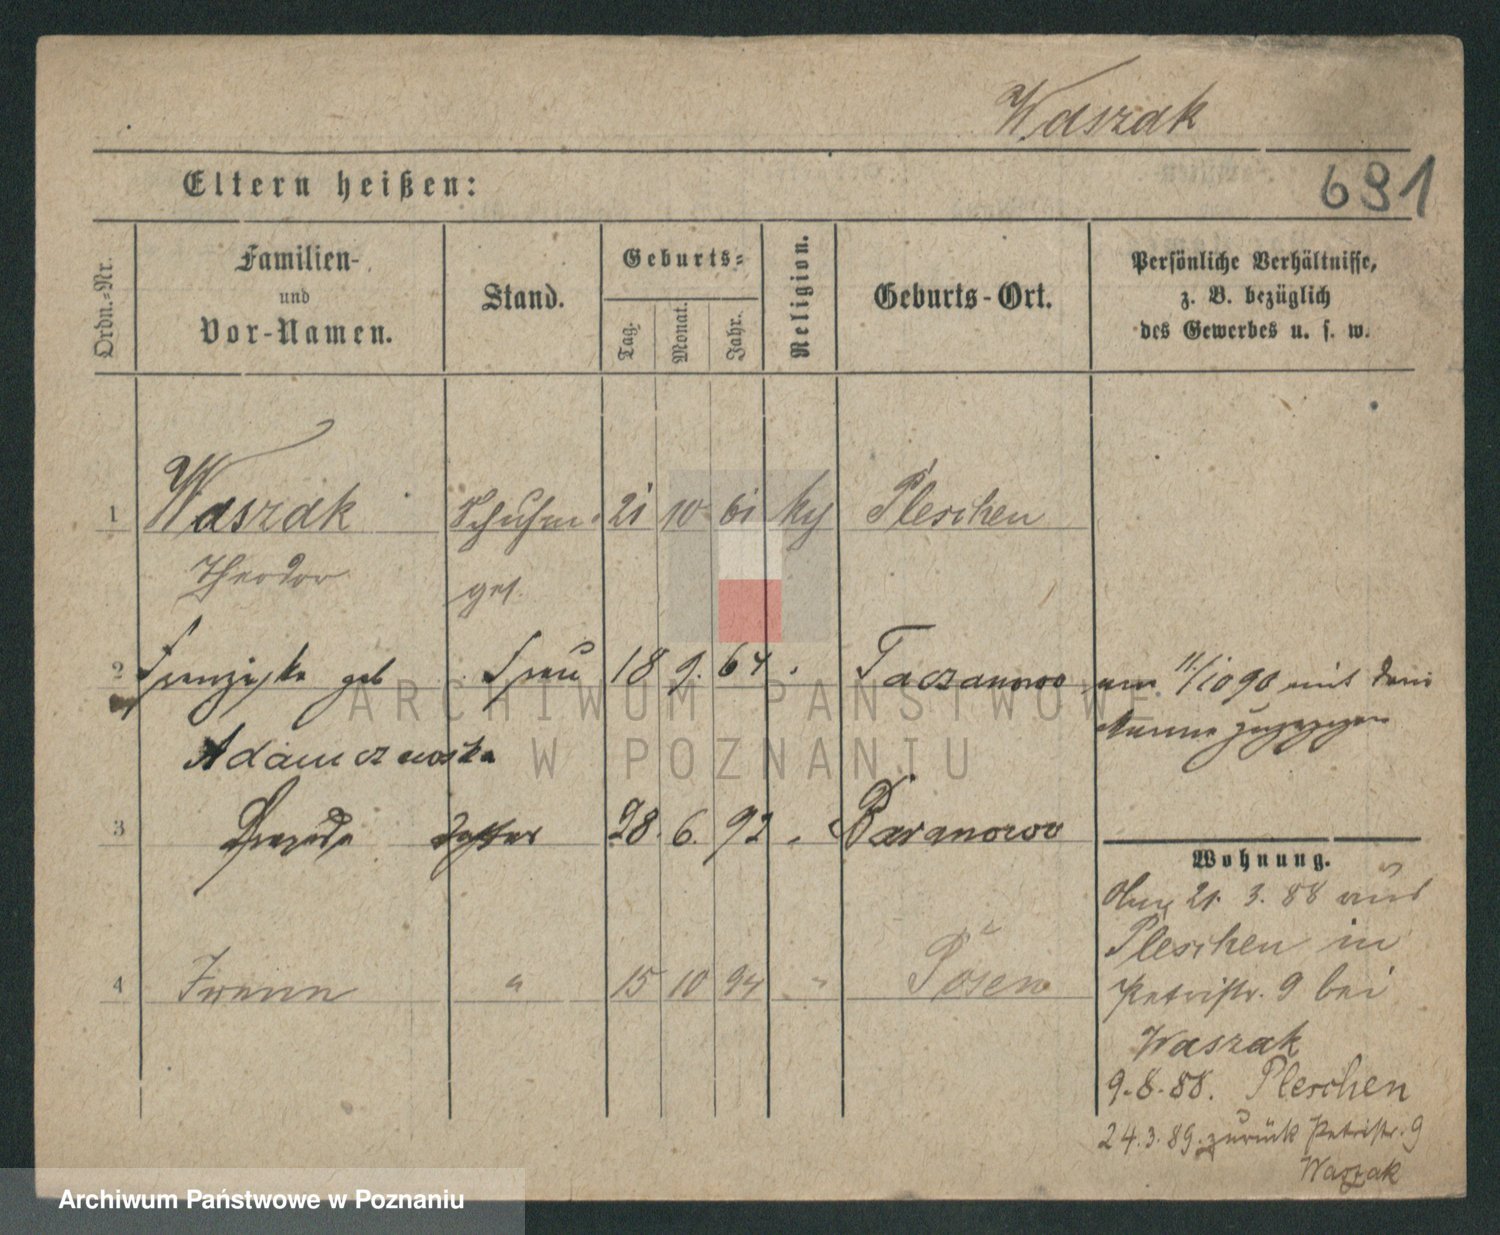 Waszak
681
Eltern heißen:
Ordn.-Nr.
Familien-
und
Vor-Namen.
Stand.
Geburts-
Tag.
Monat.
Jahr.
Religion.
Geburts-Ort.
Persönliche Verhältnisse,
z. B. bezüglich
des Gewerbes u. s. w.
1 Waszak Schuhm. 21 10 61 ky Pleschen
Theodor ges.
2 Franziska geb Frau 18 9. 64 Taczanowo am 11/10 90 mit dem
Adamczewska Manne zugezogen
3 Tochter 28. 6. 92 Baranowo
Wohnung.
4 Irenn " 15 10 94 " Posen
21. 3. 88 aus
Pleschen in
Petristr. 9 bei
Waszak
9.8.88. Pleschen
24.3.89. zurück Petristr. 9
Waszak
ARCHIWUM PAŃSTWOWE
W POZNANIU
Archiwum Państwowe w Poznaniu